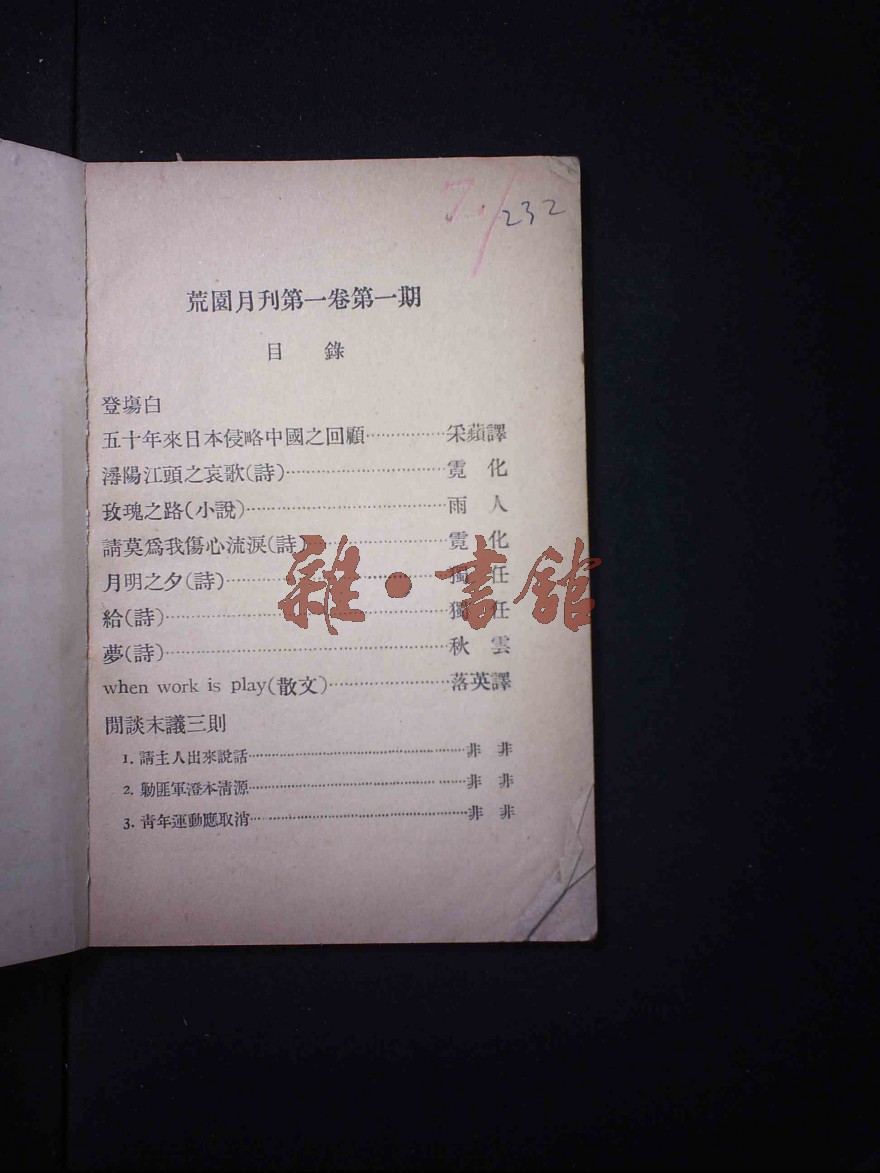 232
荒園月刊第一卷第一期
目 錄
登塲白
五十年來日本侵略中國之回顧⋯⋯⋯⋯采蘋譯
潯陽江頭之哀歌(詩)⋯⋯⋯⋯霓 化
玫瑰之路(小說)⋯⋯⋯⋯雨 人
請莫爲我傷心流淚(詩)⋯⋯⋯⋯霓 化
月明之夕(詩)⋯⋯⋯⋯獨 任
給(詩)⋯⋯⋯⋯獨 任
夢(詩)⋯⋯⋯⋯秋 雲
when work is play(散文)⋯⋯⋯⋯落英譯
閒談末議三則
1. 請主人出來說話⋯⋯⋯⋯非 非
2. 勦匪軍澄本淸源⋯⋯⋯⋯非 非
3. 靑年運動應取消⋯⋯⋯⋯非 非
雜·書館